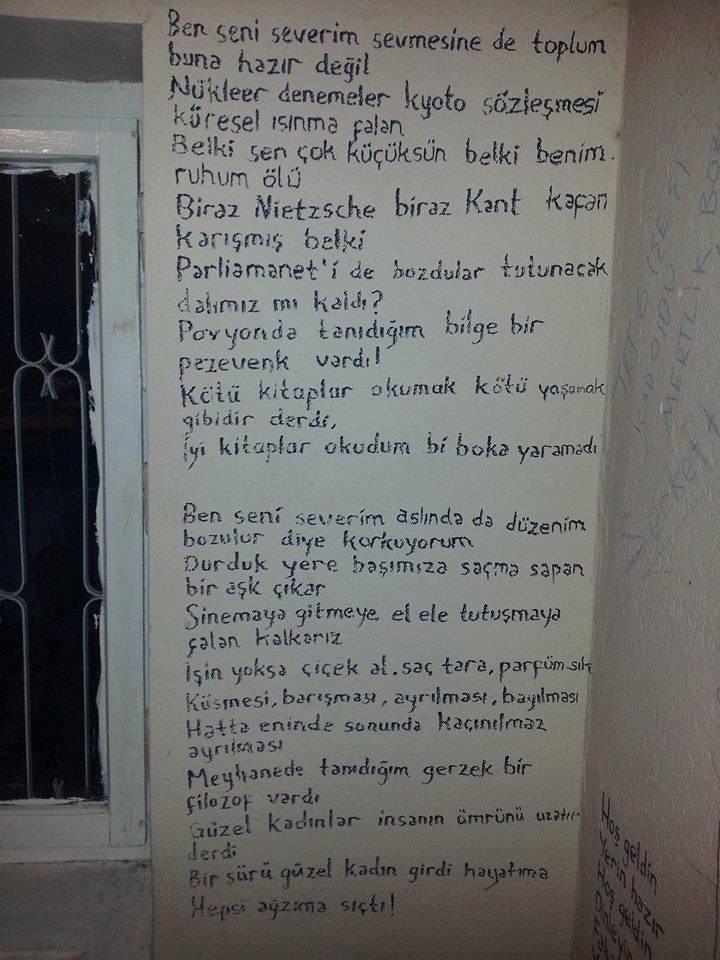 Ben seni severim sevmesine de toplum
buna hazır değil
Nükleer denemeler kyoto sözleşmesi
küresel ısınma falan
Belki sen çok küçüksün belki benim
ruhum ölü
Biraz Nietzsche biraz Kant kafan
karışmış belki
Parliamanet'i de bozdular tutunacak
dalımız mı kaldı?
Pavyonda tanıdığım bilge bir
pezevenk vardı!
Kötü kitaplar okumak kötü yaşamak
gibidir derdi,
İyi kitaplar okudum bi boka yaramadı
Ben seni severim aslında da düzenim
bozulur diye korkuyorum
Durduk yere başımıza saçma sapan
bir aşk çıkar
Sinemaya gitmeye el ele tutuşmaya
falan kalkarız
İşin yoksa çiçek al, saç tara, parfüm sık
Küsmesi, barışması, ayrılması, bayılması
Hatta eninde sonunda kaçınılmaz
ayrılması
Meyhanede tanıdığım gerzek bir
filozof vardı
Güzel kadınlar insanın ömrünü uzatır
derdi
Bir sürü güzel kadın girdi hayatıma
Hepsi ağzıma sıçtı!
MERTLİK
Hoş geldin
Yerin hazır
Hoş geldin